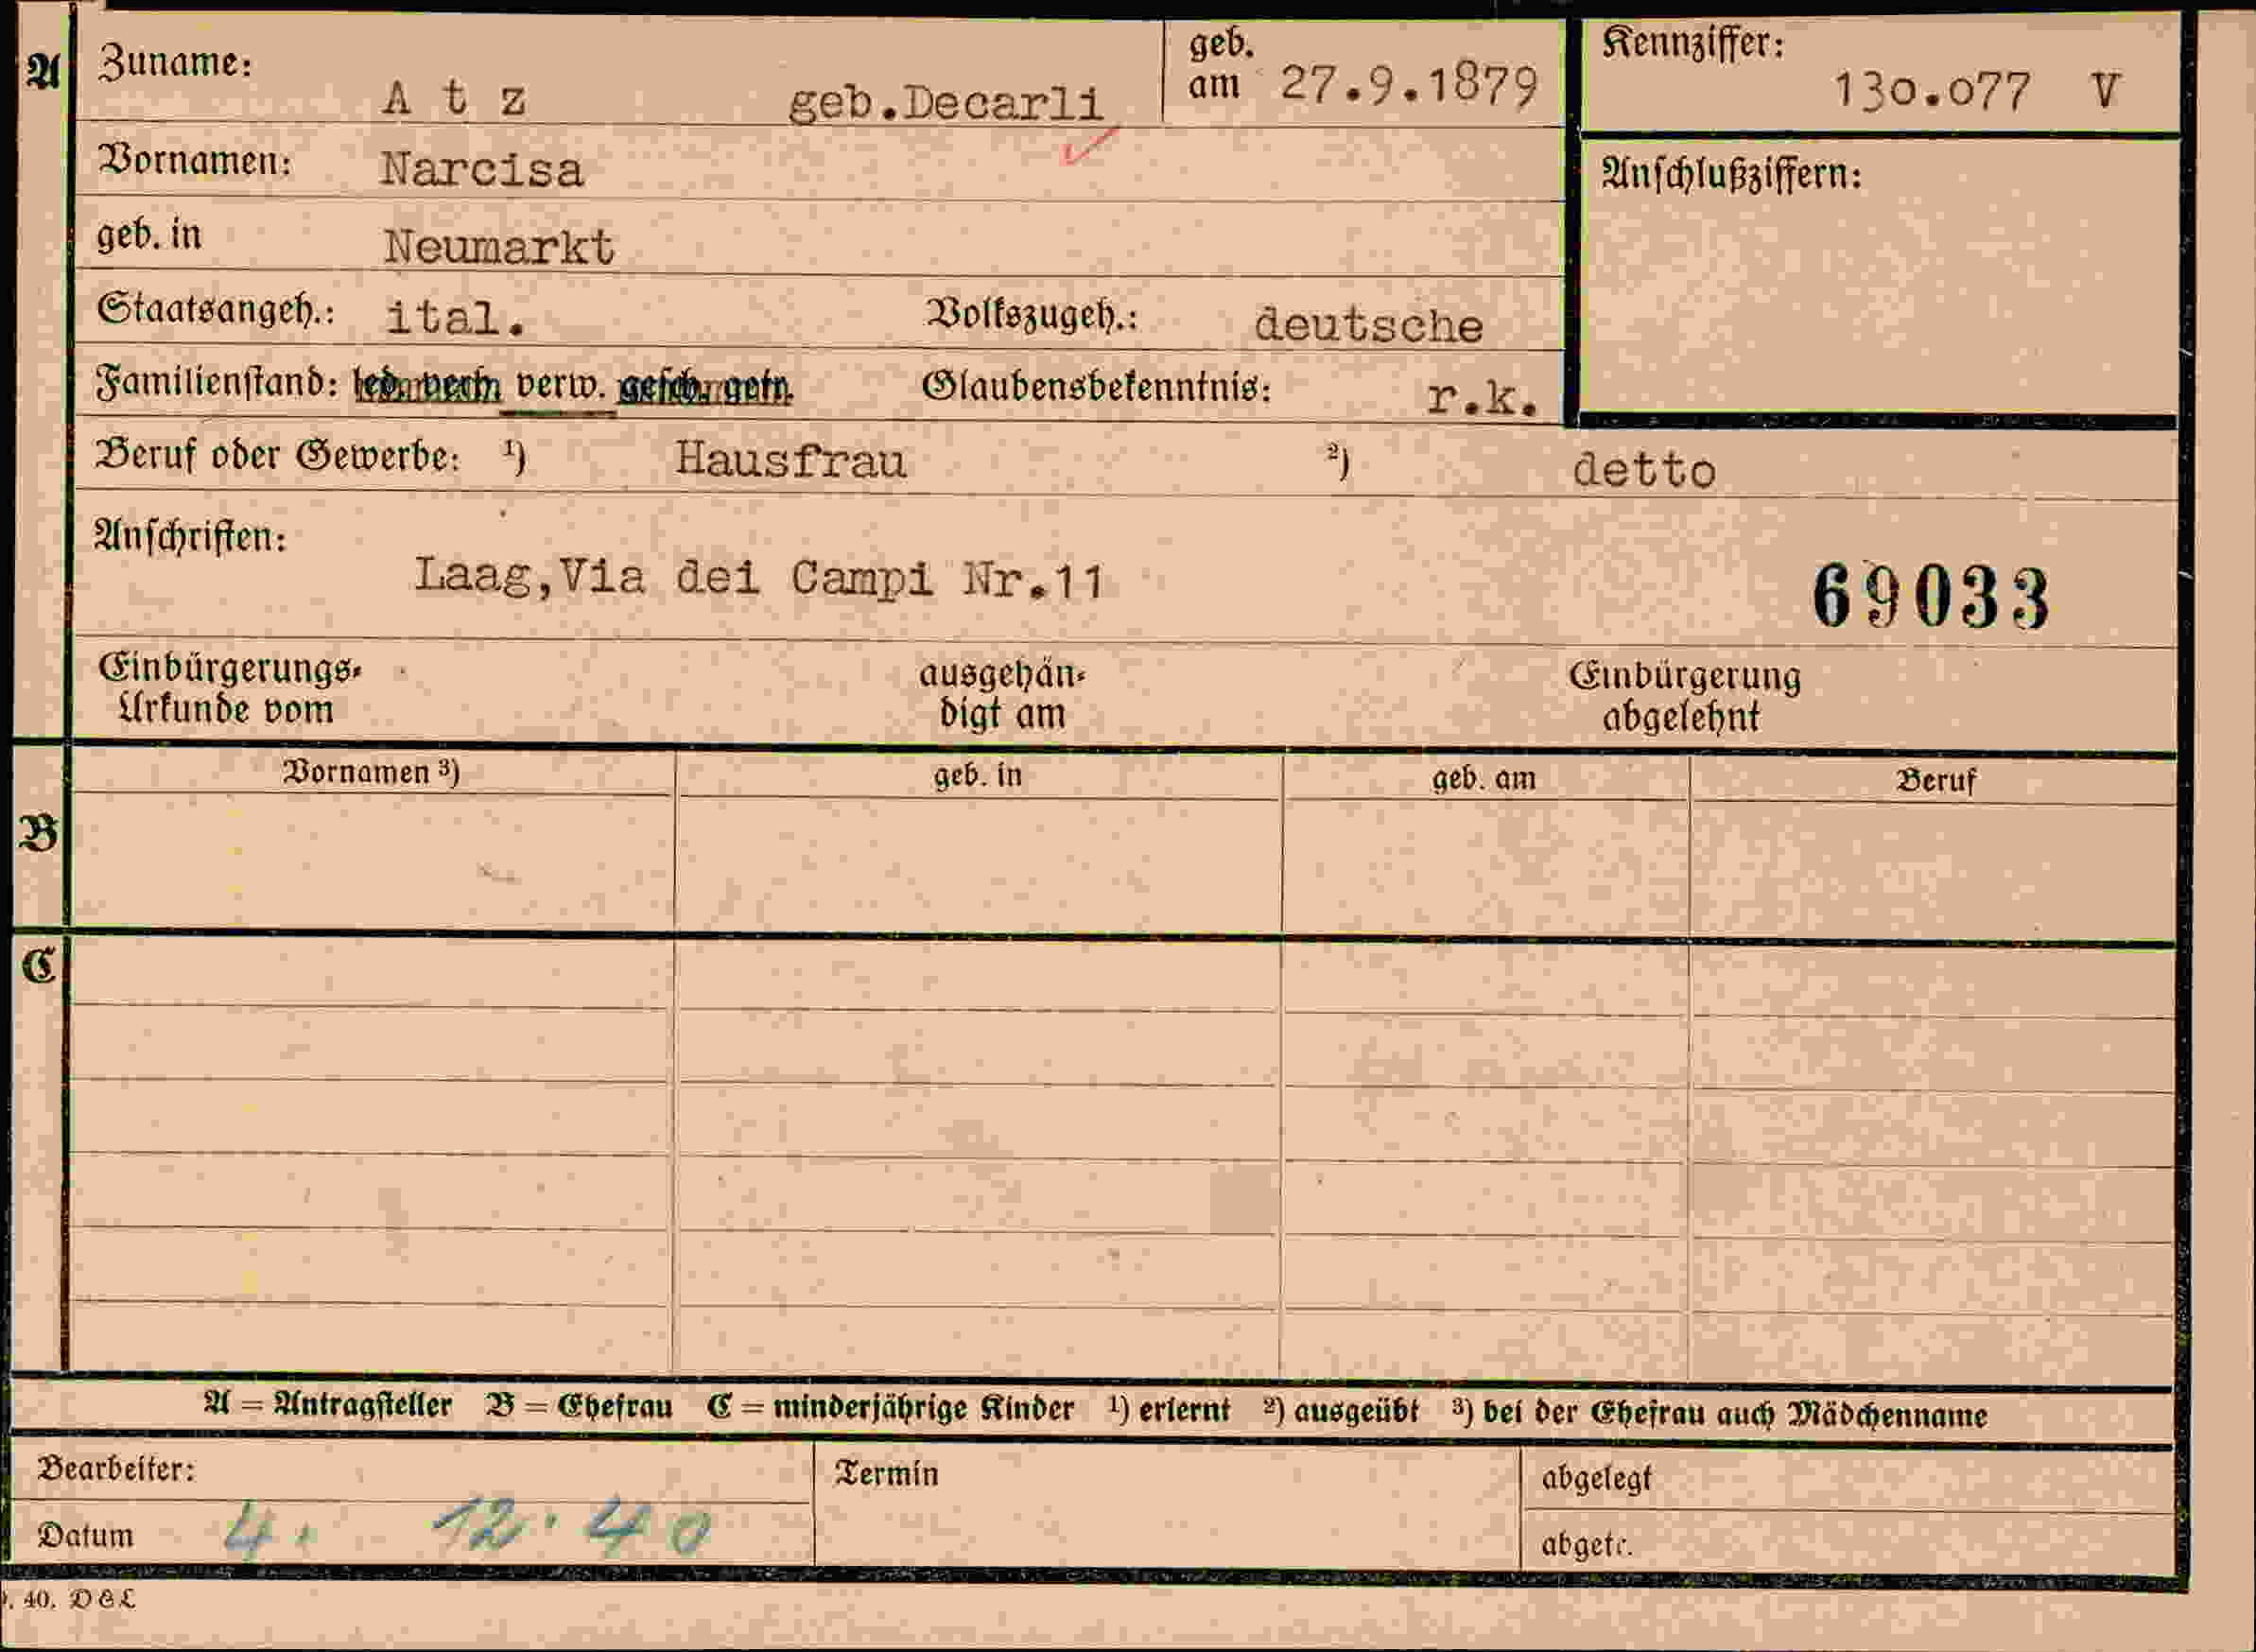 A Zuname: A t z geb.Decarli geb. am 27.9.1879 Kennziffer: 130.077 V
Vornamen: Narcisa Anschlußziffern:
geb. in Neumarkt
Staatsangeh.: ital. Volkszugeh.: deutsche
Familienstand: led. verh. verw. gesch. getr. Glaubensbekenntnis: r.k.
Beruf oder Gewerbe: ¹) Hausfrau ²) detto
Anschriften:
Laag,Via dei Campi Nr.11 69033
Einbürgerungs- ausgehän- Einbürgerung
Urkunde vom digt am abgelehnt
Vornamen ³) geb. in geb. am Beruf
B
C
A = Antragsteller B = Ehefrau C = minderjährige Kinder ¹) erlernt ²) ausgeübt ³) bei der Ehefrau auch Mädchenname
Bearbeiter: Termin abgelegt
Datum 4. 12. 40 abgetr.
40. D & L